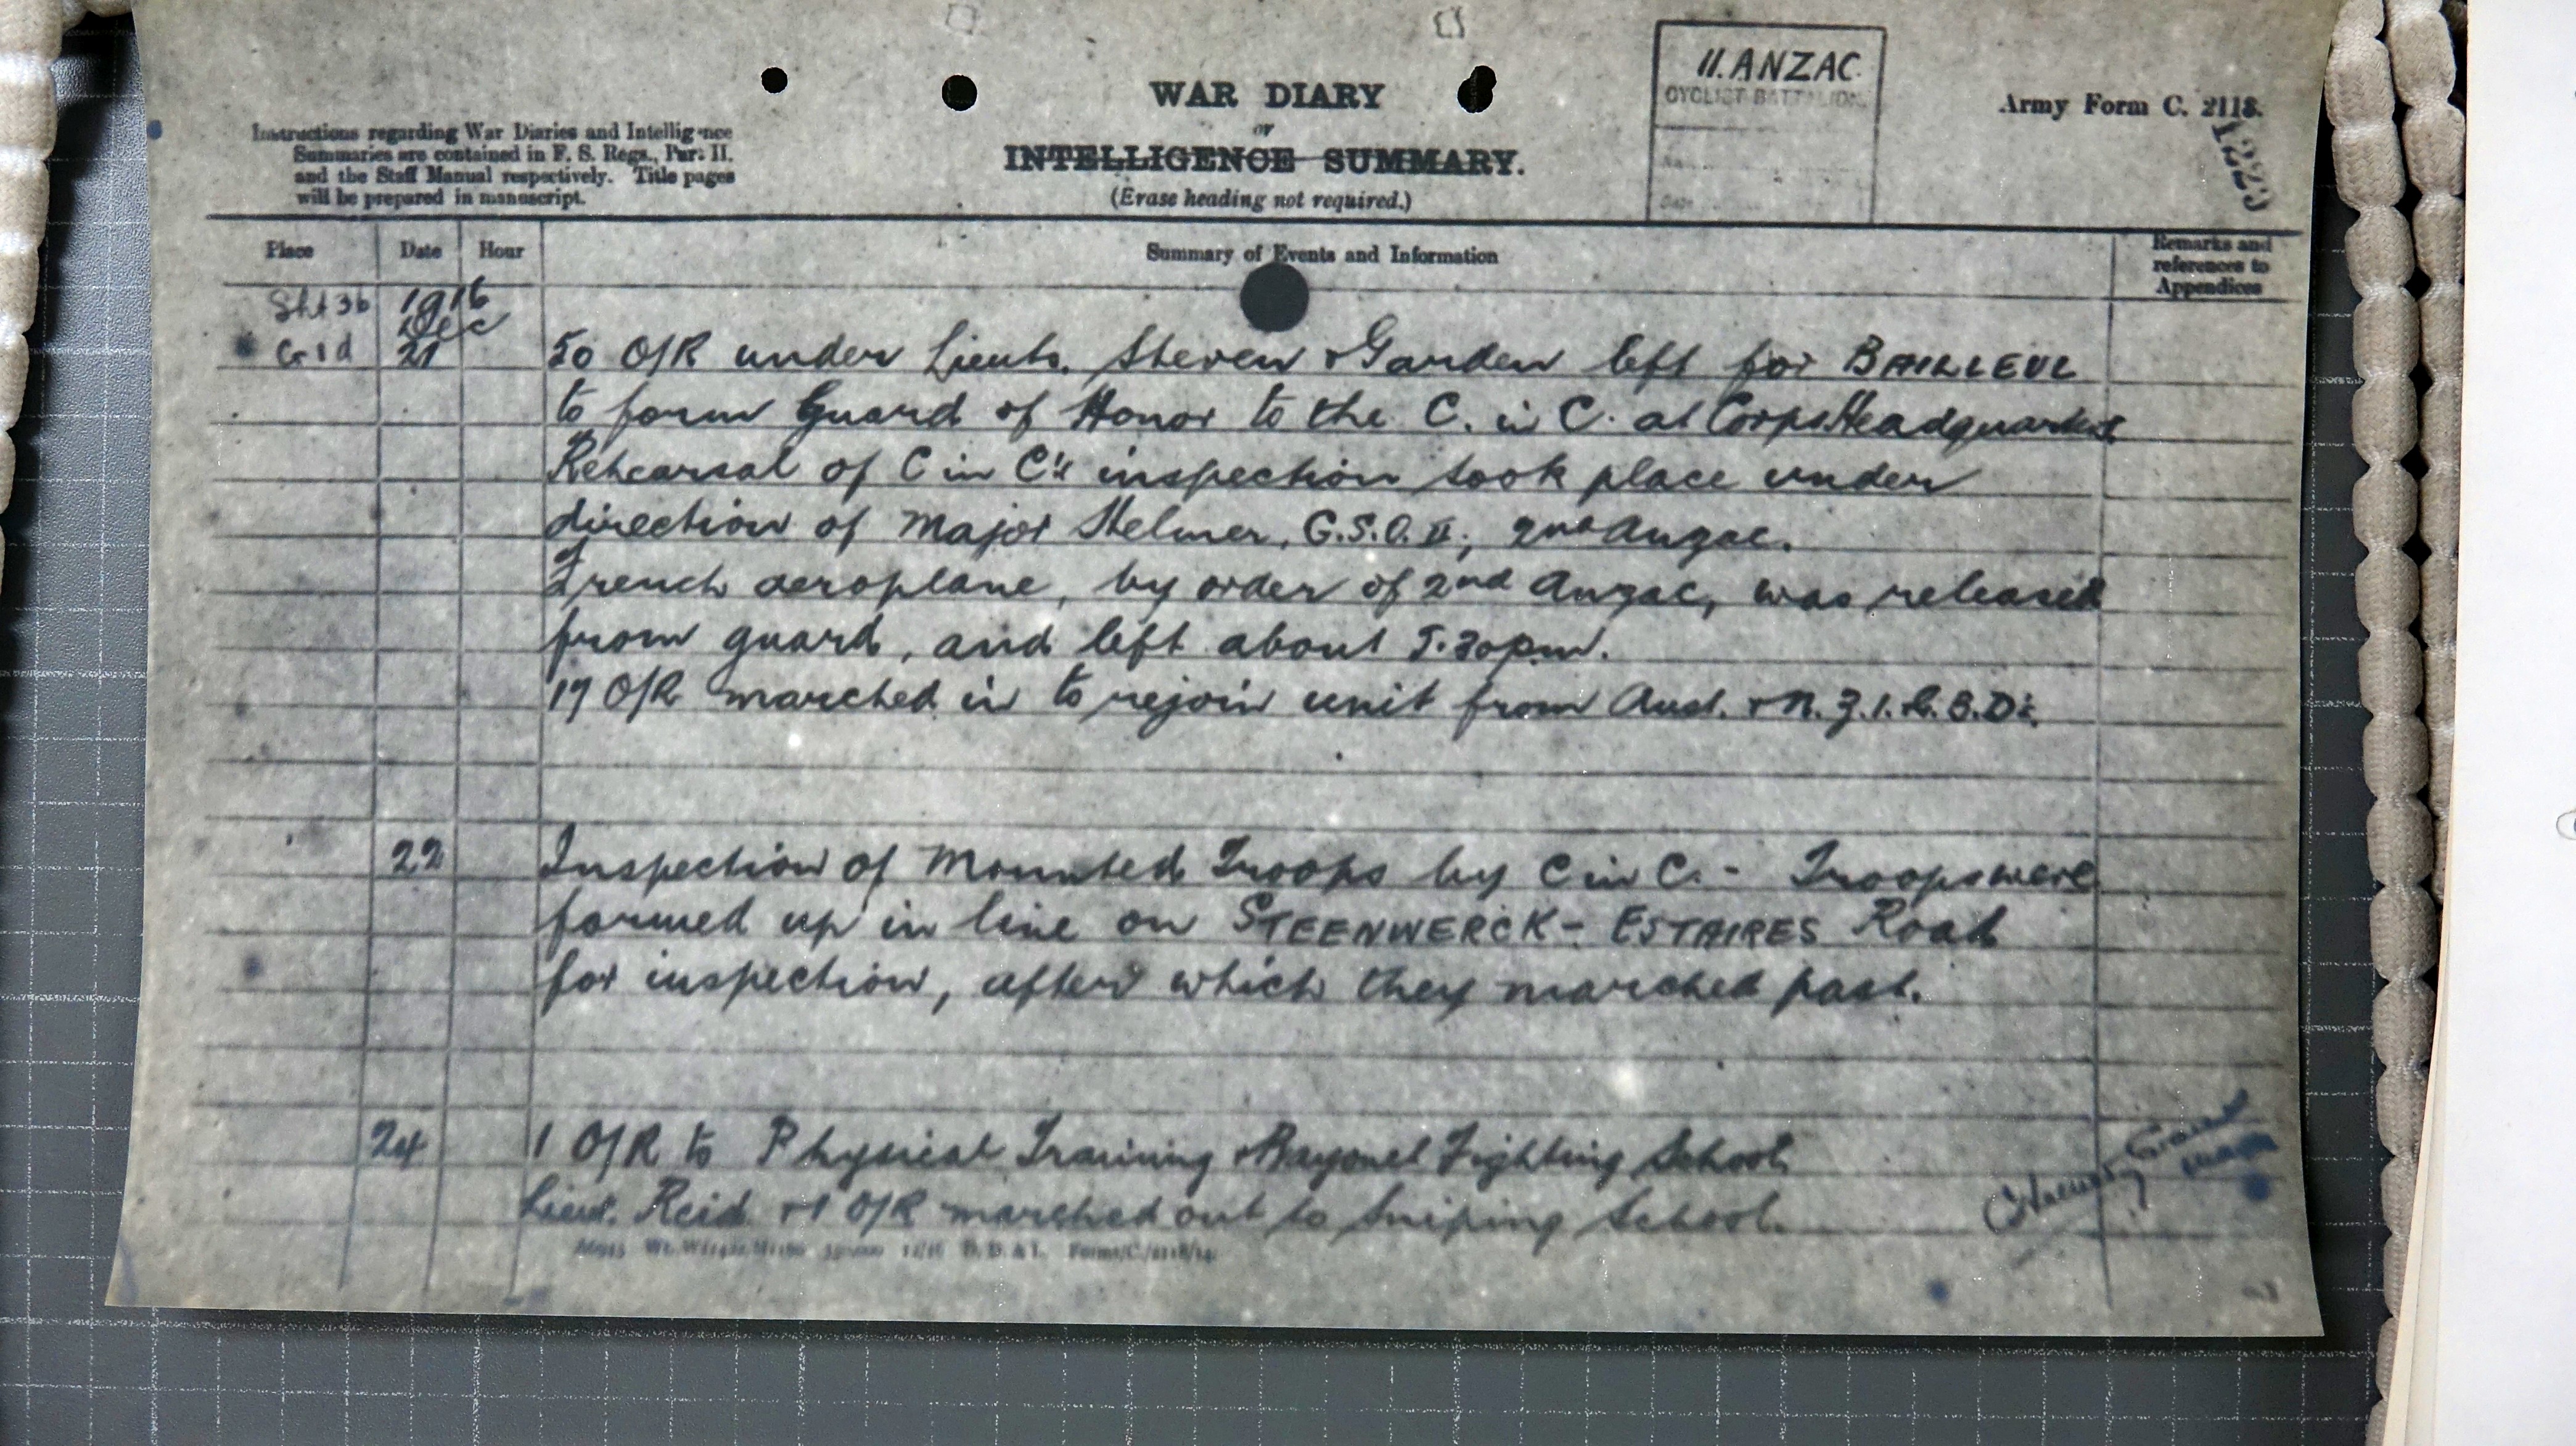 II. ANZAC
CYCLIST BATTALION
Army Form C. 2118.
WAR DIARY
or
INTELLIGENCE SUMMARY.
(Erase heading not required.)
Instructions regarding War Diaries and Intelligence
Summaries are contained in F. S. Regs., Part II.
and the Staff Manual respectively. Title pages
will be prepared in manuscript.
Place Date Hour Summary of Events and Information Remarks and
references to
Appendices
Sht 36 1916
Dec
G 1 d 21 50 O/R under Lieuts. Steven & Garden left for BAILLEUL
to form Guard of Honor to the C. in C. at Corps Headquarters
Rehearsal of C in C's inspection took place under
direction of Major Helmer, G.S.O. II, 2nd Anzac.
French aeroplane, by order of 2nd Anzac, was released
from guard, and left about 3.30pm.
17 O/R marched in to rejoin unit from Aust. & N.Z.I. & G.B.D's.
22 Inspection of Mounted Troops by C in C. - Troops were
formed up in line on STEENWERCK - ESTAIRES Road
for inspection, after which they marched past.
24 1 O/R to Physical Training & Bayonet Fighting School
Lieut. Reid & 1 O/R marched out to Sniping School.
D. D. & L. Forms/C./2118/14.